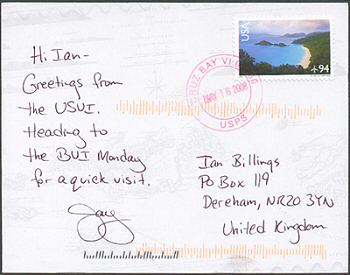 Hi Ian-
Greetings from
the USVI.
Heading to
the BVI Monday
for a quick visit.
USA
94
CRUZ BAY VI
MAY 15 2008
USPS
Ian Billings
PO Box 119
Dereham, NR20 3YN
United Kingdom